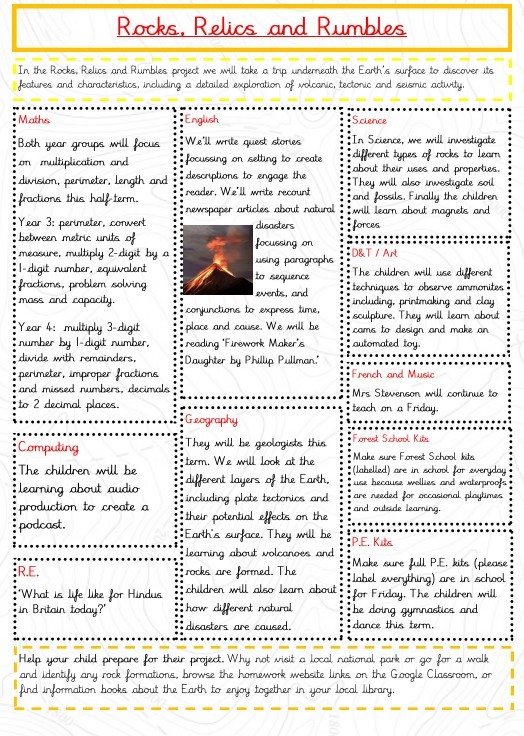 Rocks, Relics and Rumbles
In the Rocks, Relics and Rumbles project we will take a trip underneath the Earth's surface to discover its
features and characteristics, including a detailed exploration of volcanic, tectonic and seismic activity.
Maths
Both year groups will focus
on multiplication and
division, perimeter, length and
fractions this half-term.
Year 3: perimeter, convert
between metric units of
measure, multiply 2-digit by a
1-digit number, equivalent
fractions, problem solving
mass and capacity.
Year 4: multiply 3-digit
number by 1-digit number,
divide with remainders,
perimeter, improper fractions
and missed numbers, decimals
to 2 decimal places.
Computing
The children will be
learning about audio
production to create a
podcast.
R.E.
'What is life like for Hindus
in Britain today?'
English
We'll write quest stories
focussing on setting to create
descriptions to engage the
reader. We'll write recount
newspaper articles about natural
disasters
focussing on
using paragraphs
to sequence
events, and
conjunctions to express time,
place and cause. We will be
reading 'Firework Maker's
Daughter by Phillip Pullman.'
Geography
They will be geologists this
term. We will look at the
different layers of the Earth,
including plate tectonics and
their potential effects on the
Earth's surface. They will be
learning about volcanoes and
rocks are formed. The
children will also learn about
how different natural
disasters are caused.
Science
In Science, we will investigate
different types of rocks to learn
about their uses and properties.
They will also investigate soil
and fossils. Finally the children
will learn about magnets and
forces.
D&T / Art
The children will use different
techniques to observe ammonites
including, printmaking and clay
sculpture. They will learn about
cams to design and make an
automated toy.
French and Music
Mrs Stevenson will continue to
teach on a Friday.
Forest School Kits
Make sure Forest School kits
(labelled) are in school for everyday
use because wellies and waterproofs
are needed for occasional playtimes
and outside learning.
P.E. Kits
Make sure full P.E. kits (please
label everything) are in school
for Friday. The children will
be doing gymnastics and
dance this term.
Help your child prepare for their project. Why not visit a local national park or go for a walk
and identify any rock formations, browse the homework website links on the Google Classroom, or
find information books about the Earth to enjoy together in your local library.